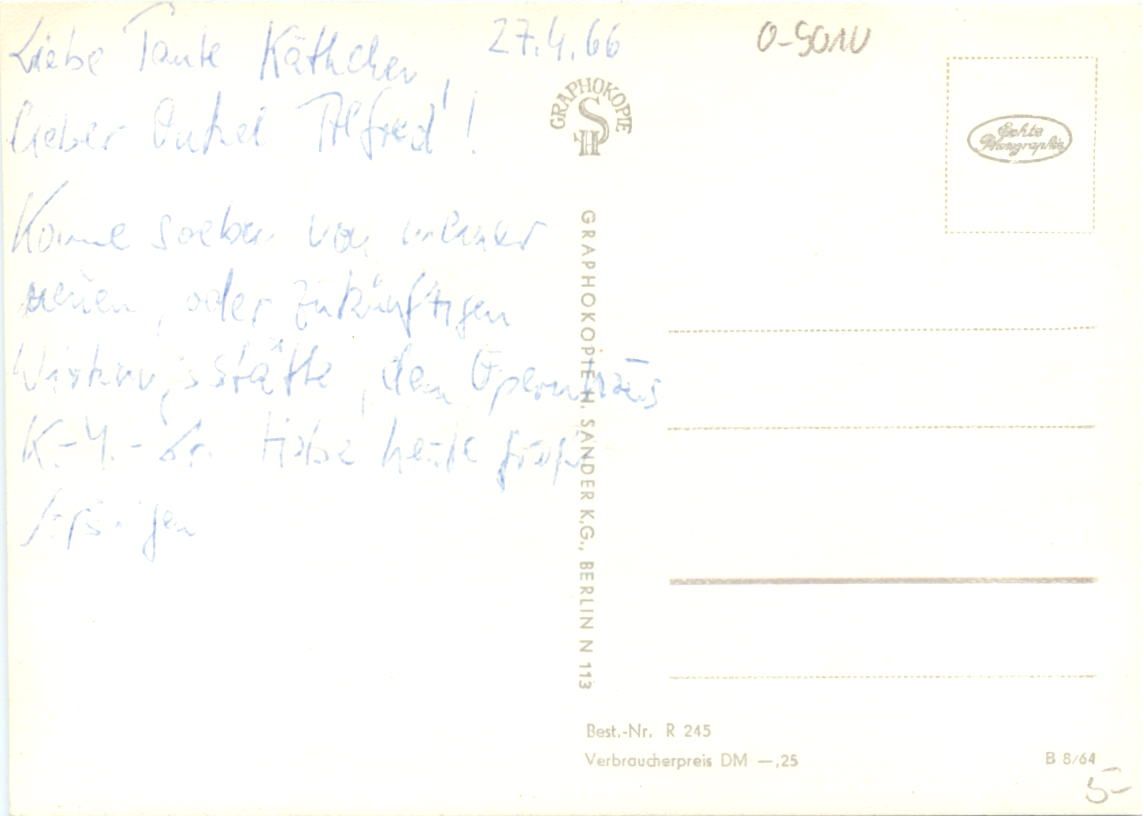 Liebe Tante Käthchen,
lieber Onkel Alfred!
27.4.66
Komme soeben von meiner
neuen, oder zukünftigen
Wirkungsstätte, dem Opernhaus
K.-M.-St. Habe heute
GRAPHOKOPIE
H S
GRAPHOKOPIE H. SANDER K.G., BERLIN N 113
Echte
Photographie
Best.-Nr. R 245
Verbraucherpreis DM —,25
B 8/64
5-